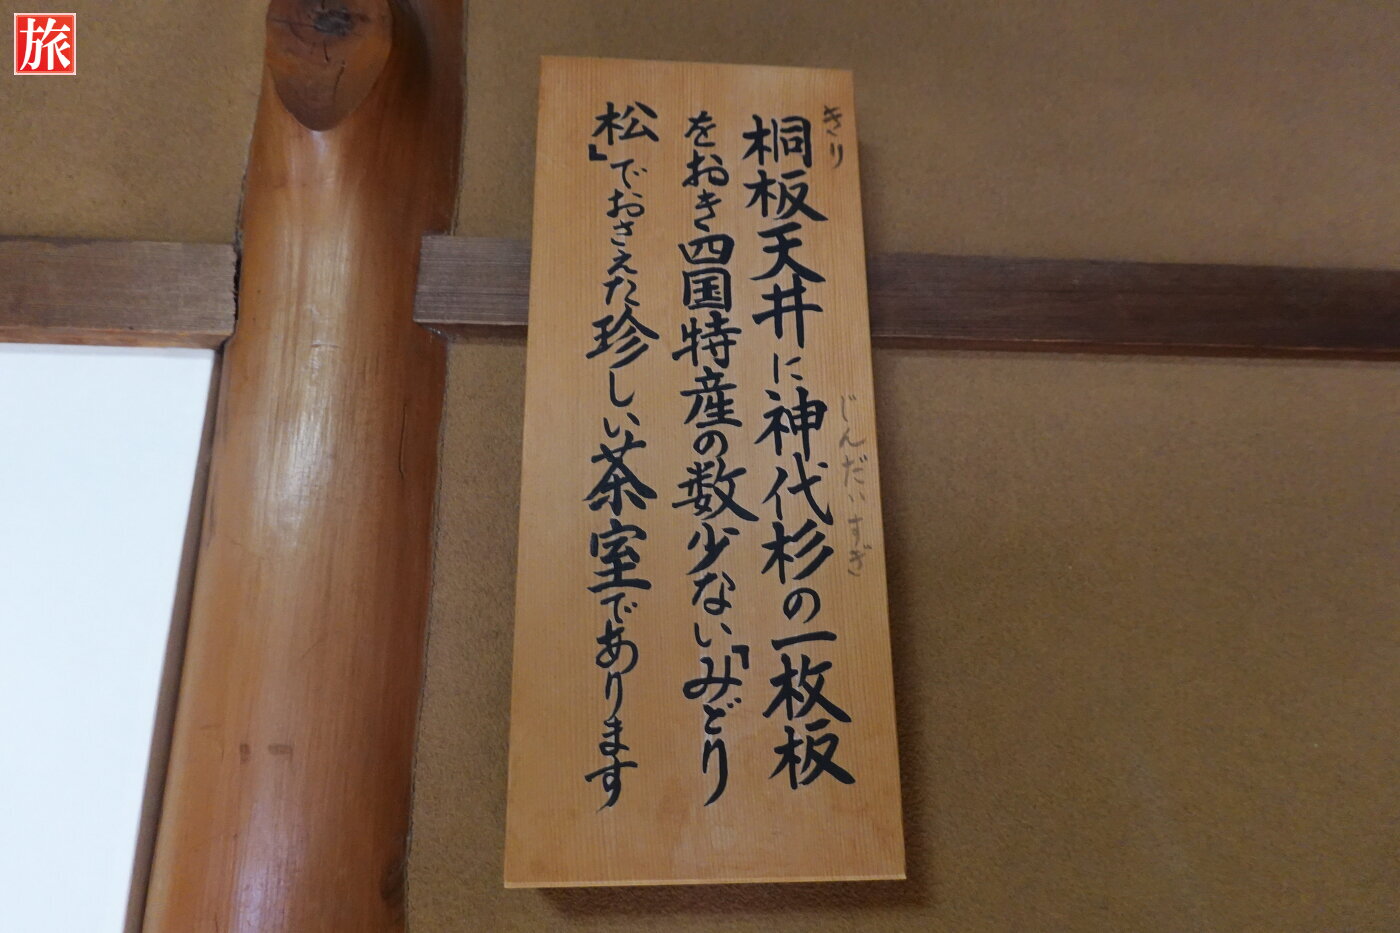 旅
桐板天井に神代杉の一枚板
きり
じんだいすぎ
をおき四国特産の数少ない「みどり
松」でおさえた珍しい茶室であります